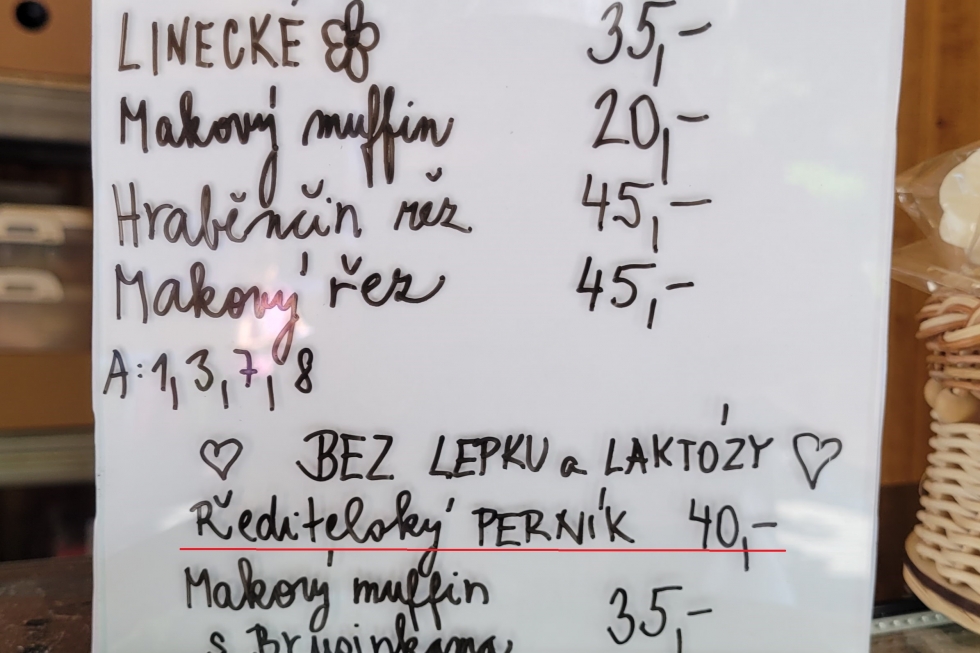 LINECKÉ 35,-
Makový muffin 20,-
Hraběnčin řez 45,-
Makový řez 45,-
A: 1, 3, 7, 8
♡ BEZ LEPKU a LAKTÓZY ♡
Ředitelský PERNÍK 40,-
Makový muffin 35,-
s Brusinkama